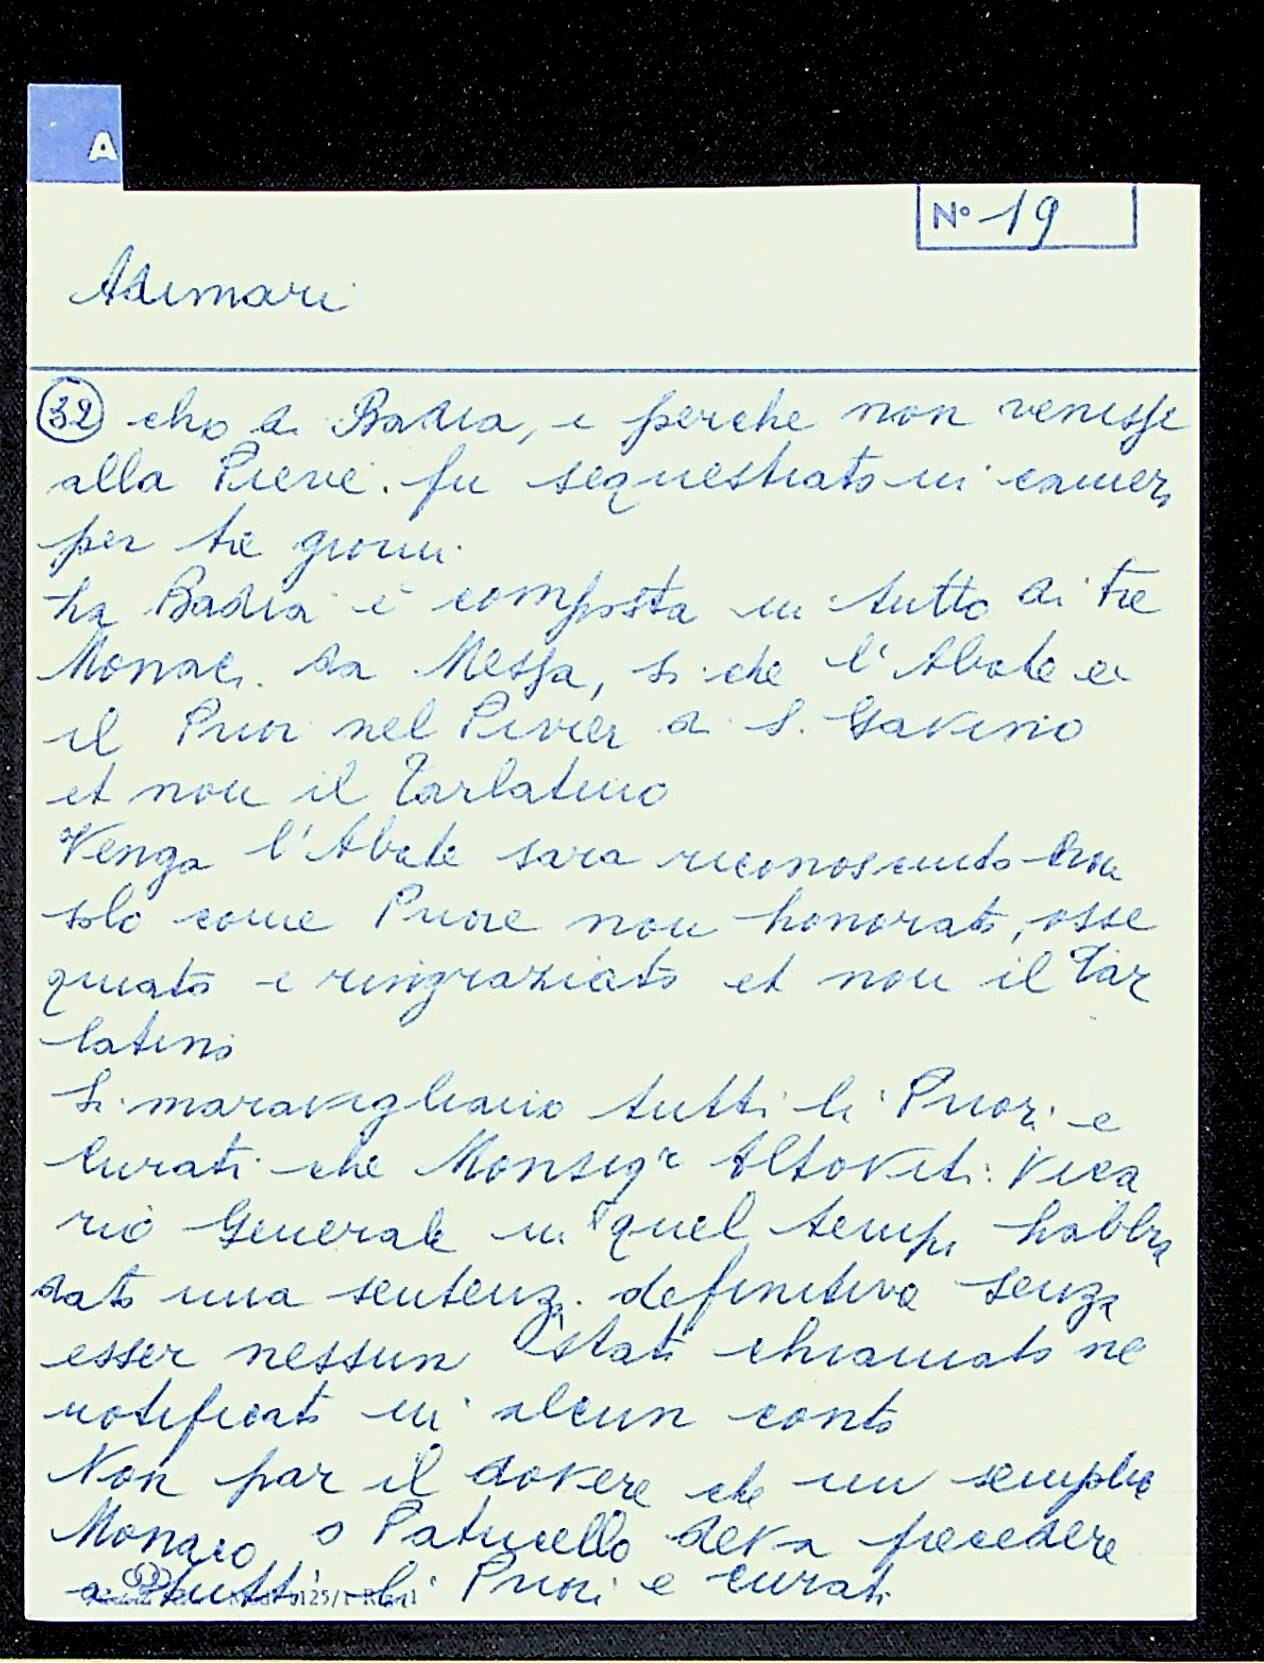 A
N° 19
Adimari
32 cho di Badia, e perche non venisse
alla Pieve. fu sequestrato in camera
per tre giorni
La Badia è composta in tutto di tre
Monaci da Messa, si che l'Abate e
il Prior nel Pivier di S. Gavino
et non il Tarlatino
Venga l'Abate sara riconosciuto non
solo come Priore non honorato, osse
quiato e ringraziato et non il Tar
latino
Si maravigliano tutti li Priori e
Curati che Monsigr Altoviti Vica
rio Generale in quel tempo habbia
dato una sentenza definitiva senza
esser nessun stato chiamato ne
notificato in alcun conto
Non par il dovere che un semplice
Monaco o Patricello deva precedere
a tutti li Priori e curati